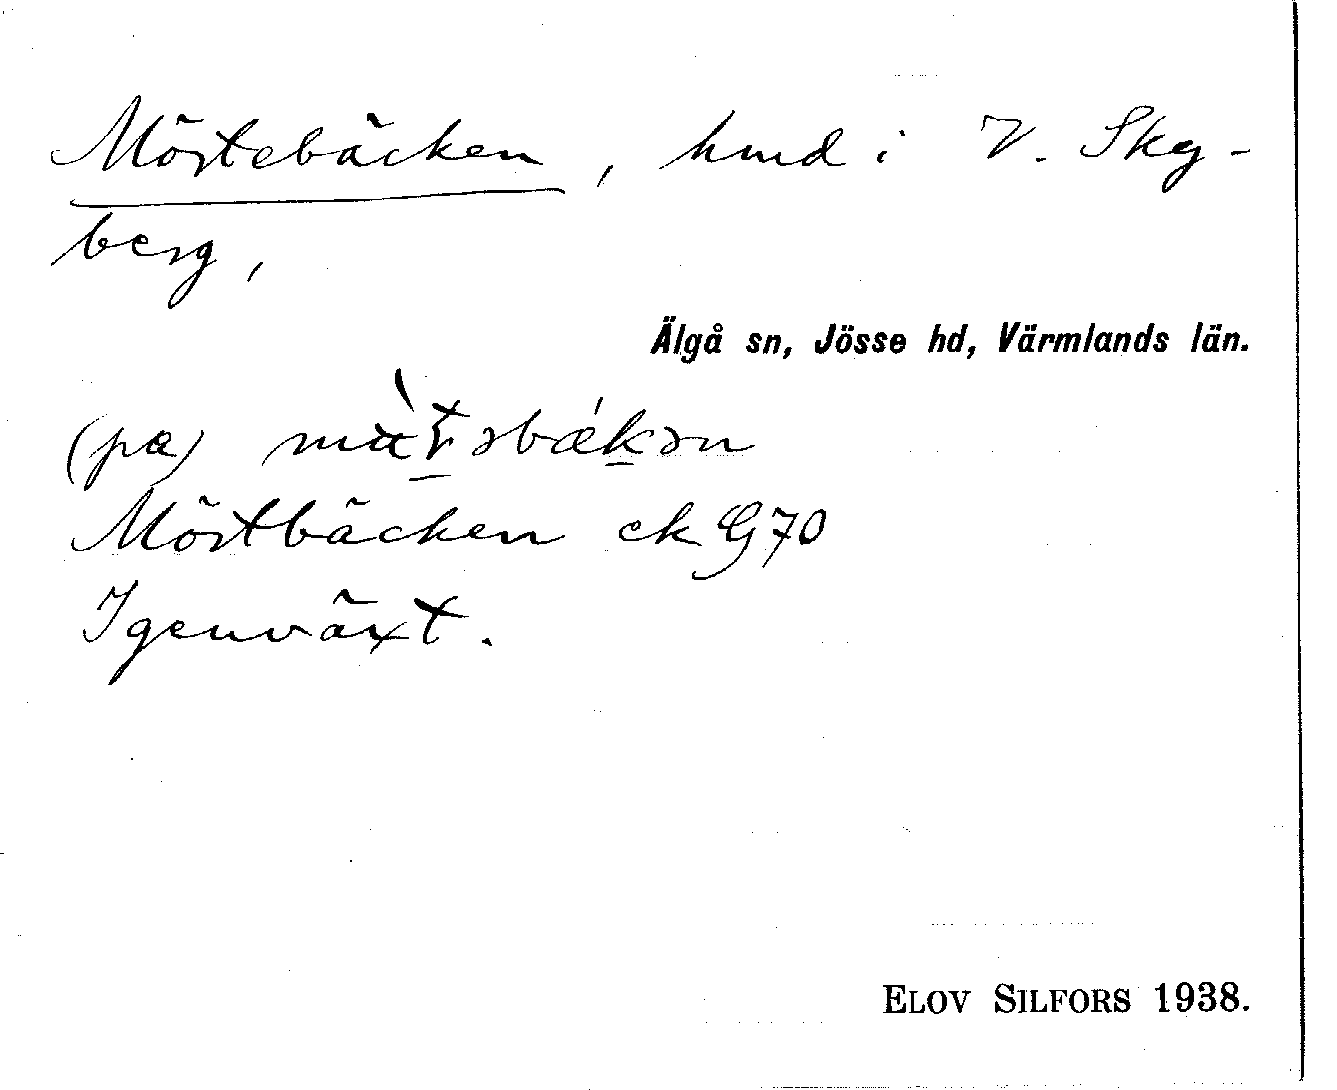 Möstebäcken, hmd i V. Sky-
berg,
Älgå sn, Jösse hd, Värmlands län.
(pa)
Möstbäcken ek G70
Igenväxt.
ELOV SILFORS 1938.